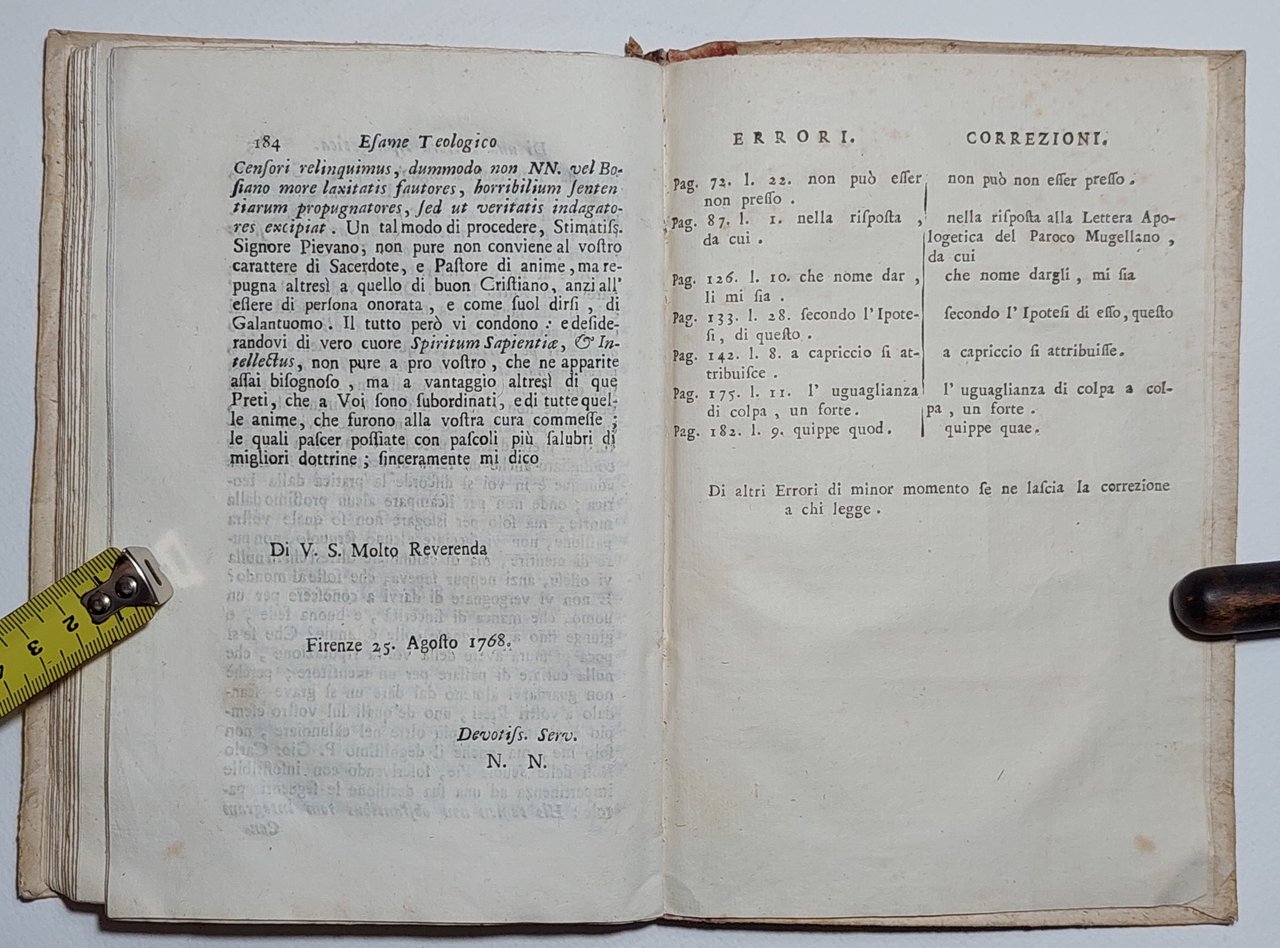 184 Eſame Teologico
Cenſori relinquimus, dummodo non NN. vel Bo-
ſiano more laxitatis fautores, horribilium ſenten
tiarum propugnatores, ſed ut veritatis indagato-
res excipiat. Un tal modo di procedere, Stimatiſs.
Signore Pievano, non pure non conviene al voſtro
carattere di Sacerdote, e Paſtore di anime, ma re-
pugna altresì a quello di buon Criſtiano, anzi all'
eſſere di perſona onorata, e come ſuol dirſi, di
Galantuomo. Il tutto però vi condono: e deſide-
randovi di vero cuore Spiritum Sapientiæ, & In-
tellectus, non pure a pro voſtro, che ne apparite
aſſai biſognoſo, ma a vantaggio altresì di que
Preti, che a Voi ſono ſubordinati, e di tutte quel-
le anime, che furono alla voſtra cura commeſſe;
le quali paſcer poſſiate con paſcoli più ſalubri di
migliori dottrine; ſinceramente mi dico
Di V. S. Molto Reverenda
Firenze 25. Agoſto 1768.
Devotiſs. Serv.
N. N.
ERRORI. CORREZIONI.
Pag. 72. l. 22. non può eſſer non può non eſſer preſſo.
non preſſo.
Pag. 87. l. 1. nella riſpoſta, nella riſpoſta alla Lettera Apo-
da cui. logetica del Paroco Mugellano,
da cui
Pag. 126. l. 10. che nome dar, che nome dargli, mi ſia
li mi ſia.
Pag. 133. l. 28. ſecondo l'Ipote- ſecondo l'Ipoteſi di eſſo, queſto
ſi, di queſto.
Pag. 142. l. 8. a capriccio ſi at- a capriccio ſi attribuiſſe.
tribuiſce.
Pag. 175. l. 11. l' uguaglianza l' uguaglianza di colpa a col-
di colpa, un forte. pa, un forte.
Pag. 182. l. 9. quippe quod. quippe quae.
Di altri Errori di minor momento ſe ne laſcia la correzione
a chi legge.
1
2
3
4